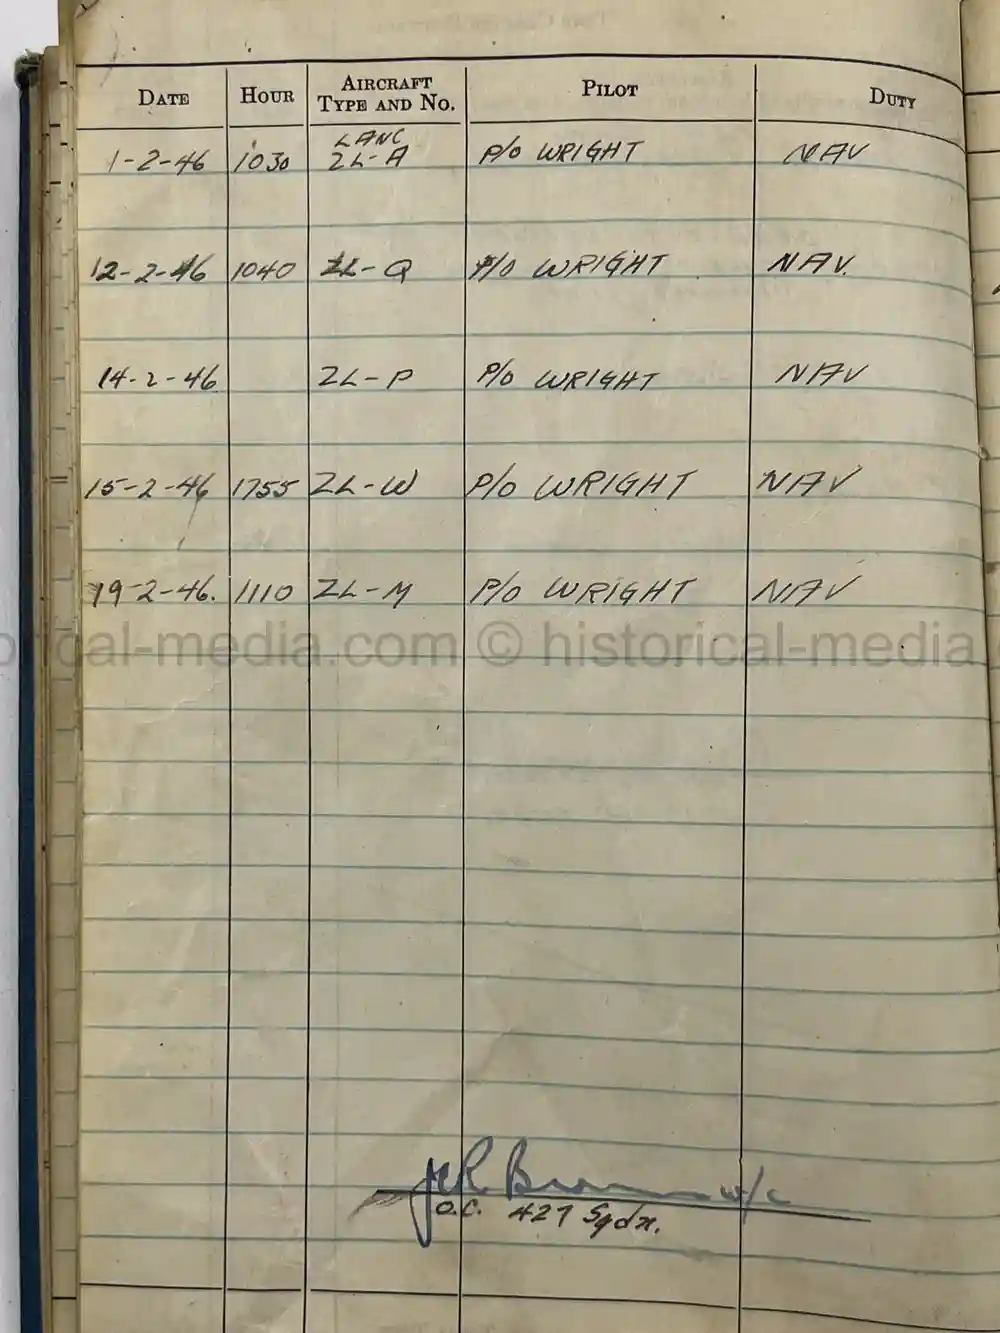 DATE HOUR AIRCRAFT TYPE AND NO. PILOT DUTY
1-2-46 1030 LANC ZL-A P/O WRIGHT NAV
12-2-46 1040 ZL-Q P/O WRIGHT NAV.
14-2-46 ZL-P P/O WRIGHT NAV
15-2-46 1755 ZL-W P/O WRIGHT NAV
19-2-46. 1110 ZL-M P/O WRIGHT NAV
historical-media.com © historical-media
W/C
O.C. 427 Sqdn.